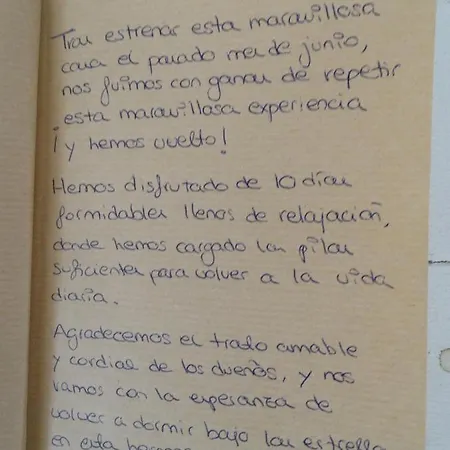 Tras estrenar esta maravillosa
casa el pasado mes de junio,
nos fuimos con ganas de repetir
esta maravillosa experiencia
¡y hemos vuelto!
Hemos disfrutado de 10 días
formidables llenos de relajación,
donde hemos cargado las pilas
suficientes para volver a la vida
diaria.
Agradecemos el trato amable
y cordial de los dueños, y nos
vamos con la esperanza de
volver a dormir bajo las estrellas
en esta